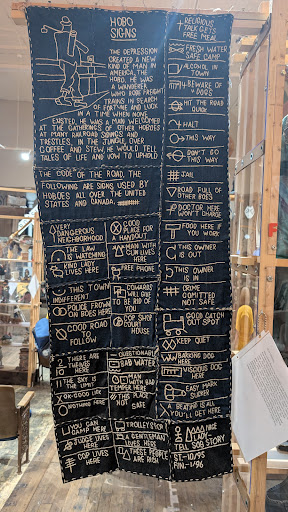 HOBO
SIGNS
THE DEPRESSION
CREATED A NEW
KIND OF MAN IN
AMERICA, THE
HOBO. HE WAS
A WANDERER
WHO ROB FREIGHT
TRAINS IN SEARCH
OF FORTUNE AND LUCK
IN A TIME WHEN NONE
EXISTED. HE WAS A MAN WELCOMED
AT THE GATHERINGS OF OTHER HOBOES
AT MANY RAILROAD SIDINGS AND
TRESTLES, IN THE JUNGLE, OVER
COFFEE AND STEW, HE WOULD TELL
TALES OF LIFE AND VOW TO UPHOLD
THE CODE OF THE ROAD. THE
FOLLOWING ARE SIGNS USED BY
HOBOES ALL OVER THE UNITED
STATES AND CANADA.
VERY
DANGEROUS
NEIGHBORHOOD
THE LAW
IS WATCHING
KIND LADY
LIVES HERE
THIS TOWN
INDIFFERENT
POLICE FROWN
ON BOES HERE
GOOD ROAD
TO
FOLLOW
THERE ARE
THIEVES
HERE
THE SKY IS
THE LIMIT
OK-GOOD LIFE
NOTHING HERE
YOU CAN
CAMP HERE
JUDGE LIVES
HERE
COP LIVES
HERE
GOOD
PLACE FOR
A HANDOUT
MAN WITH
GUN LIVES
HERE
FREE PHONE
COWARDS
WILL GIVE
TO BE RID OF
YOU
COP SHOP
COURT
HOUSE
QUESTIONABLE
BAD WATER
WITH BAD
TEMPER HERE
THIS PLACE
NOT
SAFE
TROLLEY STOP
A GENTLEMAN
LIVES HERE
THESE PEOPLE
ARE RICH
RELIGIOUS
TALK GETS
FREE MEAL
FRESH WATER
SAFE CAMP
ALCOHOL IN
TOWN
BEWARE OF
4 DOGS
HIT THE ROAD
QUICK
HALT
THIS WAY
DON'T GO
THIS WAY
JAIL
ROAD FULL OF
OTHER BOES
DOCTOR HERE
WON'T CHARGE
FOOD HERE IF
YOU WORK
THIS OWNER
IS OUT
THIS OWNER
IS IN
CRIME
COMITTED
NOT SAFE
GOOD CATCH
OUT SPOT
KEEP QUIET
BARKING DOG
HERE
VISCIOUS DOG
HERE
EASY MARK
SUCKER
A BEATING IS ALL
YOU'LL GET HERE
NICE
LADY
TELL SOB STORY
ST.-10/95
FIN.-1/96